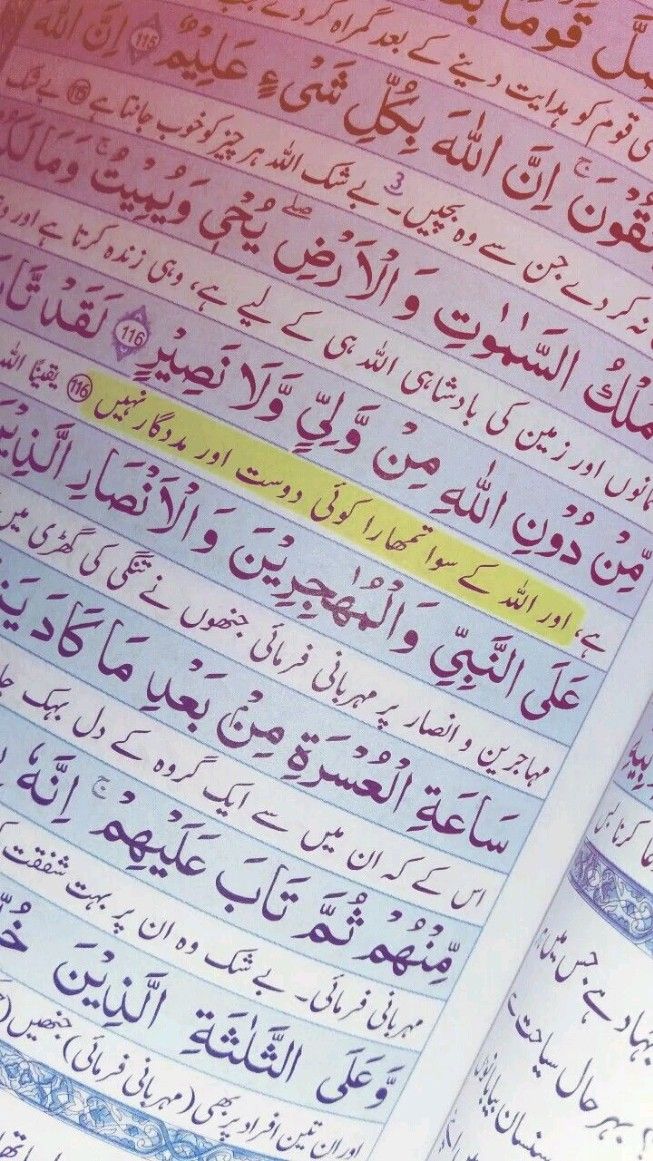 قَوْمًۢا بَعْدَ
قوم کو ہدایت دینے کے بعد گمراہ کر دے
اِنَّ اللّٰهَ بِكُلِّ شَیْءٍ عَلِیْمٌ 115 اِنَّ اللّٰهَ
نہ کر دے جن سے وہ بچیں۔ 3 بے شک اللہ ہر چیز کو خوب جانتا ہے 115 بے شک
مُلْكُ السَّمٰوٰتِ وَالْاَرْضِ ؕ یُحْیٖ وَیُمِیْتُ ؕ وَمَا
اور زمین کی بادشاہی اللہ ہی کے لیے ہے، وہی زندہ کرتا ہے اور
مِّنْ دُوْنِ اللّٰهِ مِنْ وَّلِیٍّ وَّلَا نَصِیْرٍ 116 لَقَدْ تَّابَ
ہے، اور اللہ کے سوا تمھارا کوئی دوست اور مددگار نہیں 116 یقینًا اللہ
عَلَی النَّبِیِّ وَالْمُهٰجِرِیْنَ وَالْاَنْصَارِ الَّذِیْنَ
مہاجرین و انصار پر مہربانی فرمائی جنھوں نے تنگی کی گھڑی میں
سَاعَةِ الْعُسْرَةِ مِنْۢ بَعْدِ مَا كَادَ
اس کے کہ ان میں سے ایک گروہ کے دل بہک
مِّنْهُمْ ثُمَّ تَابَ عَلَیْهِمْ ؕ اِنَّهٗ
مہربانی فرمائی۔ بے شک وہ ان پر بہت شفقت
وَّعَلَی الثَّلٰثَةِ الَّذِیْنَ
اور ان تین افراد پر بھی (مہربانی فرمائی) جنھیں
ہے جس میں
بہر حال سیاحت